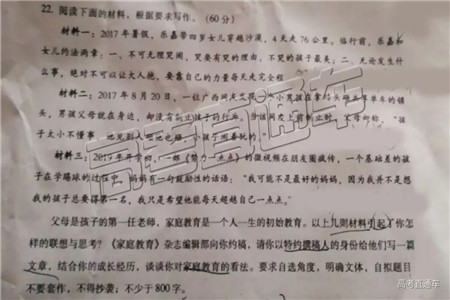 22. 阅读下面的材料，根据要求写作。（60 分）
材料一：2017 年暑假，乐嘉带四岁女儿穿越沙漠，4 天走 76 公里，临行前，乐嘉和
女儿约法两章：一、不可无理哭闹，哭要有哭的理由，不哭的孩子最美；二、无论发生什
么事，绝对不可以让大人抱，要靠自己的力量每天走完全程
材料二：2017 年 8 月 20 日，一位广西网友 小男孩在拿 单车的镜
头，男孩父母就在身边，却没有制止孩子的行为，当该网友上前制止时，父母却称，“孩
子太小不懂事
材料三：2017 年开学初，一部《努力一点点》的微视频在朋友圈疯传，一个基础差的孩
子在学踢球的过程中，妈妈有一句鼓励性的话语：“我可能不是最好的妈妈，因为我并不是想
我的孩子总要得第一名，我只是希望他能每天超越自己一点点。”
父母是孩子的第一任老师，家庭教育是一个人一生的初始教育。以上几则材料引起了你怎
样的联想与思考？《家庭教育》杂志编辑部向你约稿，请你以特约撰稿人的身份给他们写一篇
文章，结合你的成长经历，谈谈你对家庭教育的看法。要求自选角度，明确文体，自拟题目
不要套作，不得抄袭；不少于 800 字。
高考直通车
高考直通车